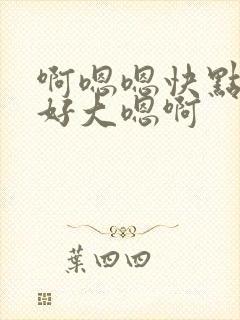 啊嗯嗯快點
好大嗯啊
葉四四